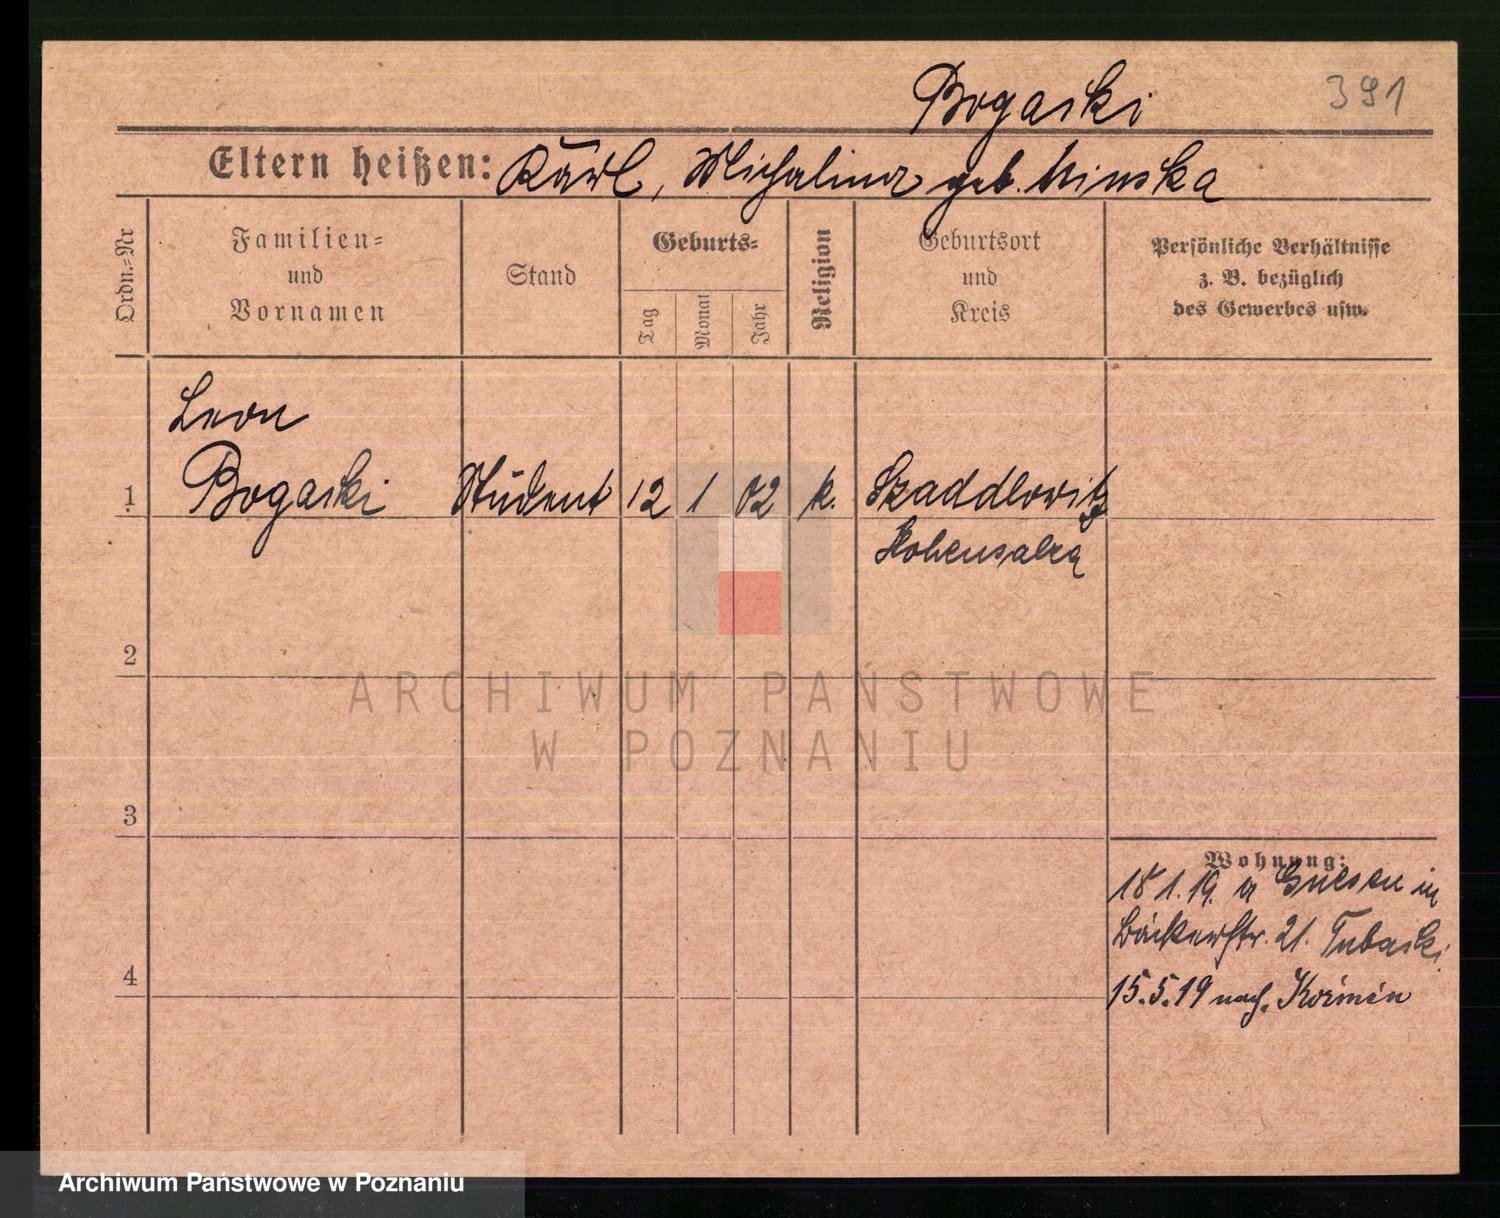 Bogaski
391
Eltern heißen: Karl, Michalina geb. Minska
Ordn.-Nr
Familien-
und
Vornamen
Stand
Geburts-
Tag
Monat
Jahr
Religion
Geburtsort
und
Kreis
Persönliche Verhältnisse
z. B. bezüglich
des Gewerbes usw.
Leon
1 Bogaski Student 12 1 02 k. Szaddlowitz
Hohensalza
2
3
4
Wohnung:
18 1. 19. a Gnesen in
Bäckerstr. 21. Tubaski.
15.5.19 nach. Kozmin
ARCHIWUM PAŃSTWOWE
W POZNANIU
Archiwum Państwowe w Poznaniu